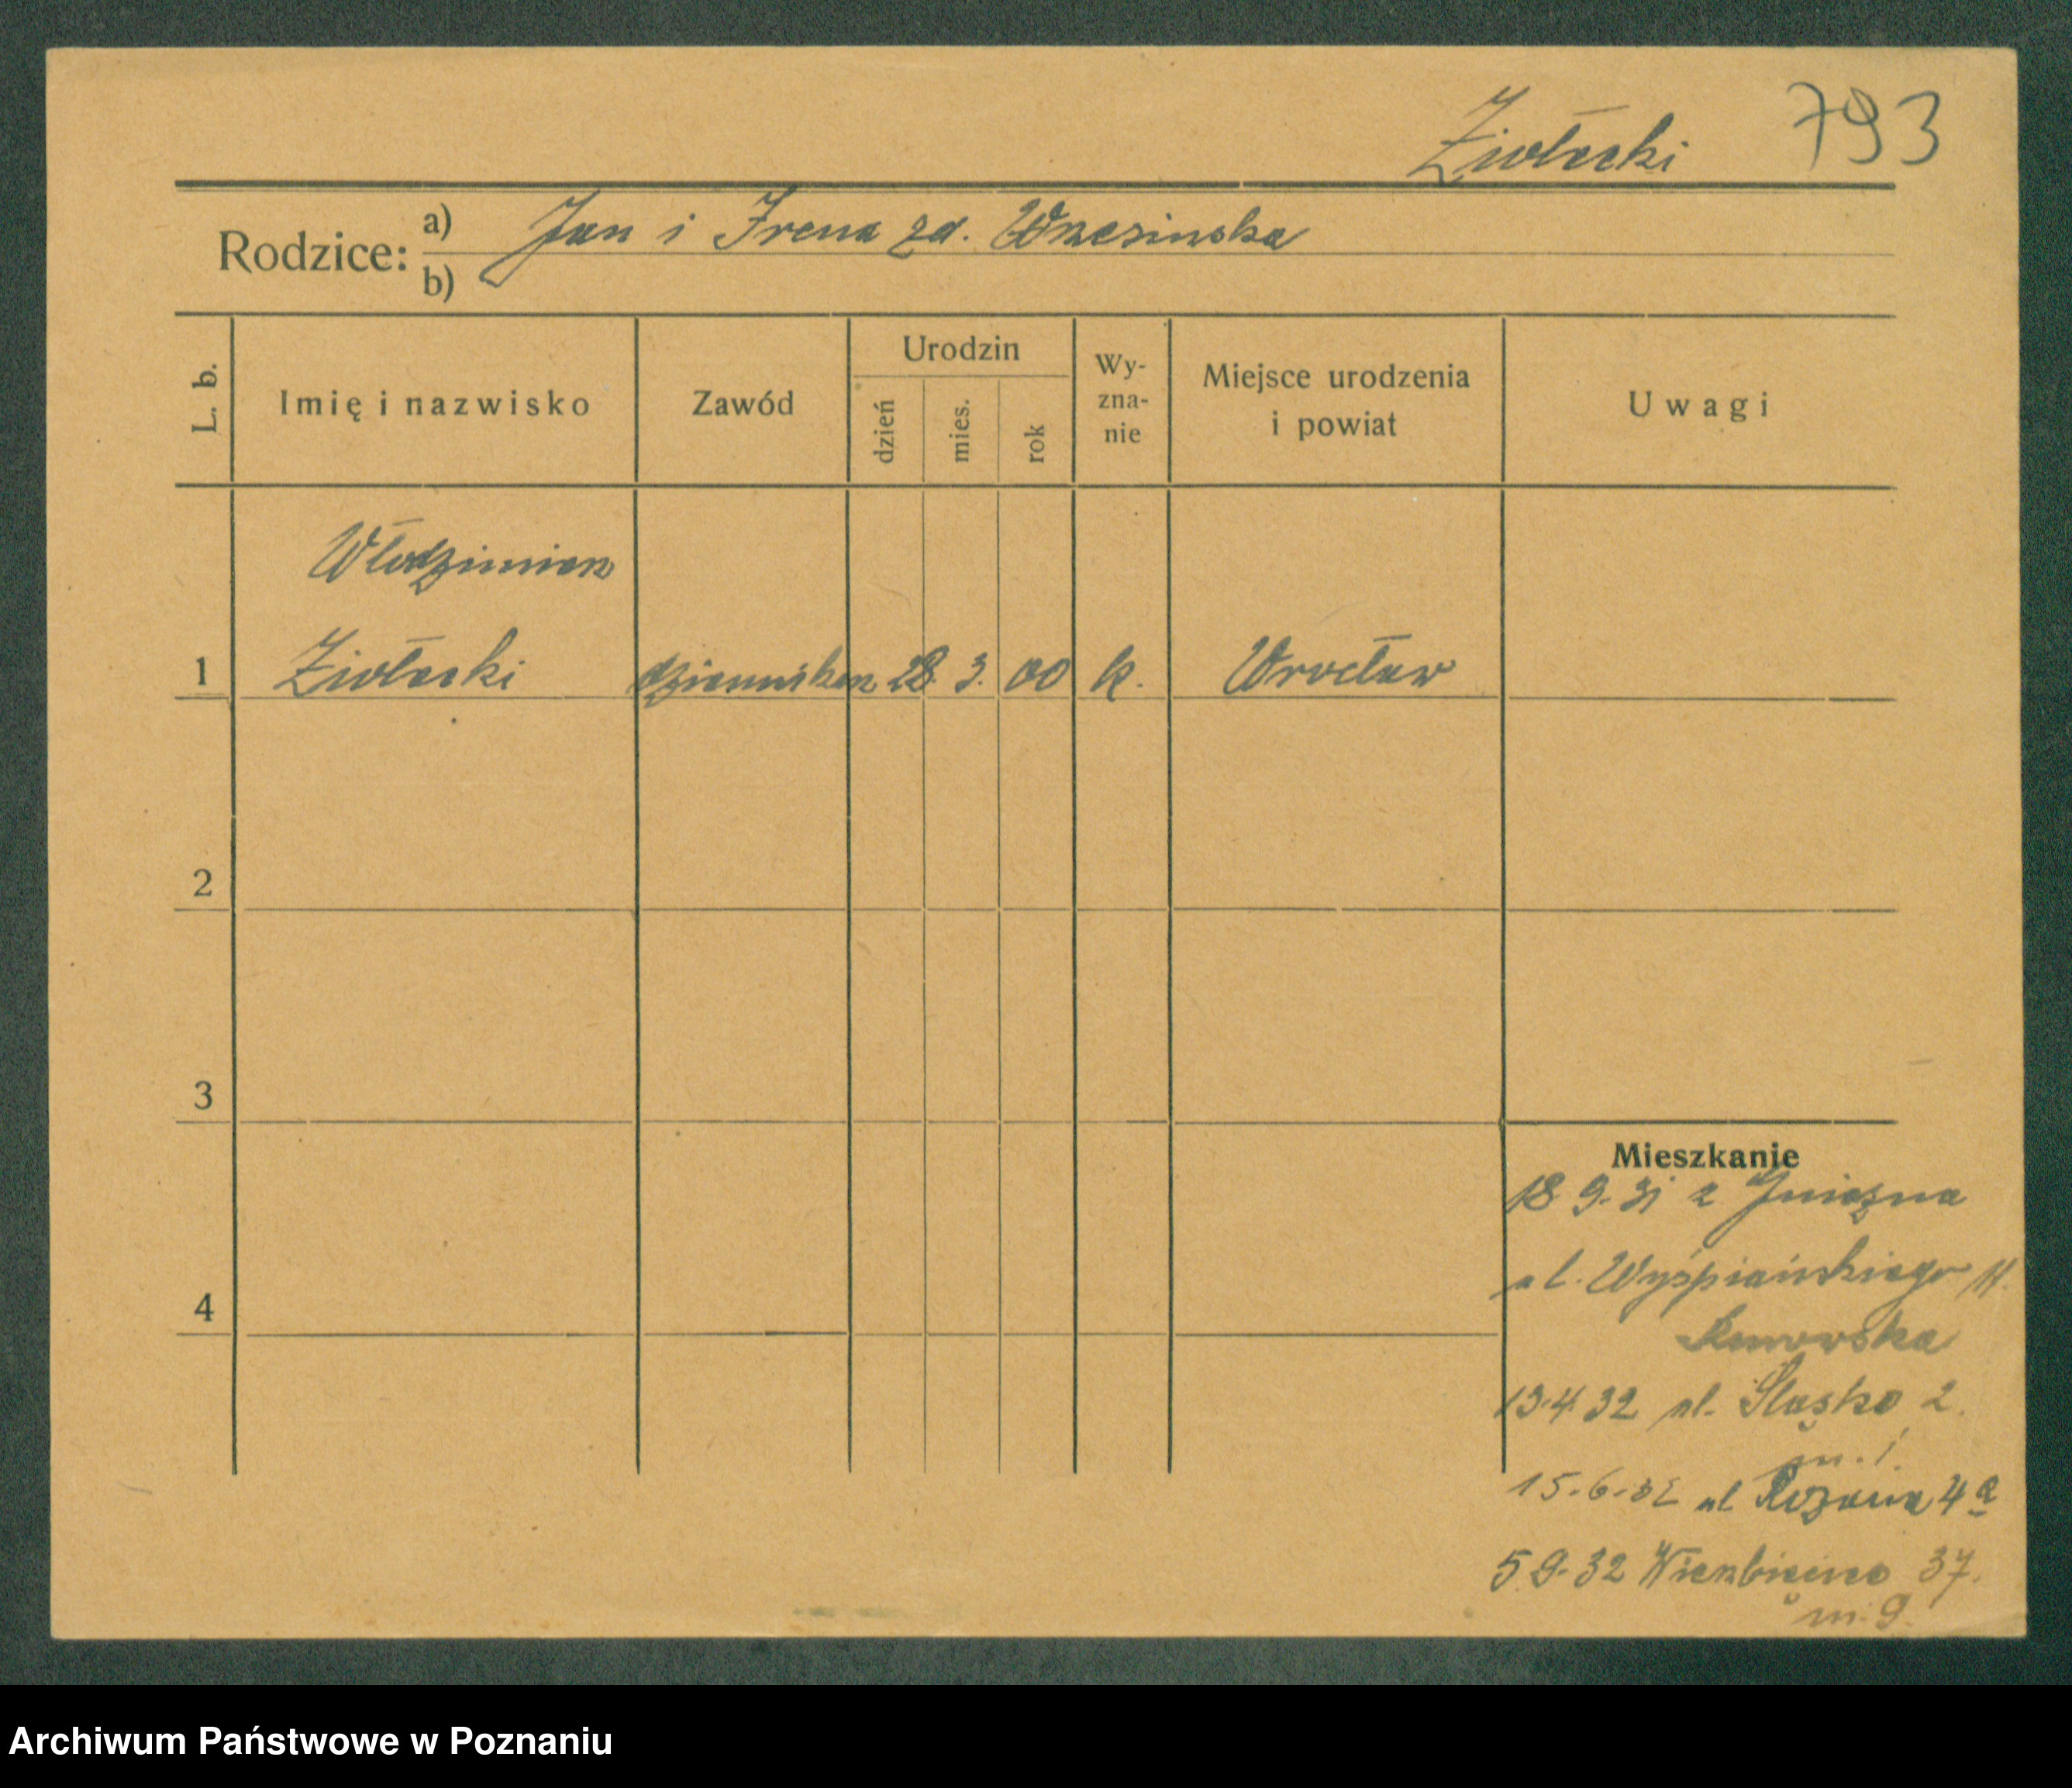 Ziołecki 793
Rodzice: a) Jan i Irena zd. Wrzesinska
b)
L. b. Imię i nazwisko Zawód Urodzin dzień mies. rok Wyznanie Miejsce urodzenia i powiat Uwagi
Włodzimierz
1 Ziołecki dziennikarz 28. 3. 00 k. Wrocław
2
3
Mieszkanie
18 9. 31 z Gniezna
4
ul. Wyśpiańskiego 11.
13.4.32 ul. Śląska 2.
m. 1.
15.6.32 ul Rozana 4a
5.9.32 Wierzbięcice 37.
m. 9.
Archiwum Państwowe w Poznaniu